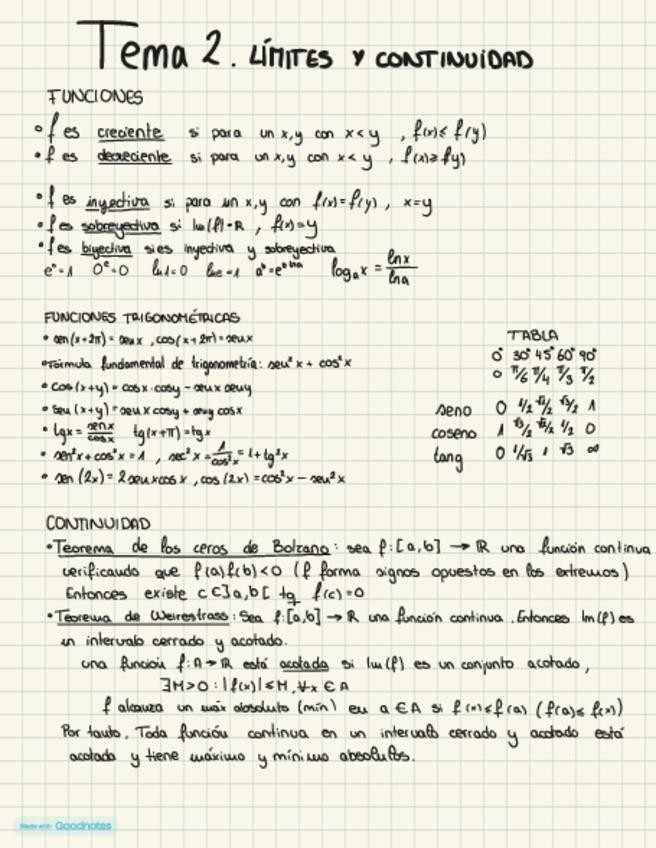 Tema 2. LÍMITES Y CONTINUIDAD
FUNCIONES
• f es creciente si para un x,y con x<y , f(x)≤ f(y)
• f es decreciente si para un x,y con x<y , f(x)≥ f(y)
• f es inyectiva si para un x,y con f(x)=f(y) , x=y
• f es sobreyectiva si Im(f)=R , f(x)=y
• f es biyectiva si es inyectiva y sobreyectiva
e⁰=1 0ᵉ=0 ln1=0 lne=1 logₐx = lnx/lna
FUNCIONES TRIGONOMÉTRICAS
• sen(x+2π)= senx , cos(x+2π)=senx
• Fórmula fundamental de trigonometría: sen²x + cos²x
• cos(x+y)= cosx·cosy - senx seny
• sen(x+y)=senx cosy + seny cosx
• tgx = senx/cosx tg(x+π)=tgx
• sen²x+cos²x=1 , sec²x = 1/cos²x = 1+tg²x
• sen(2x)= 2senxcosx , cos(2x)=cos²x - sen²x
TABLA
0° 30° 45° 60° 90°
0 π/6 π/4 π/3 π/2
seno 0 1/2 √2/2 √3/2 1
coseno 1 √3/2 √2/2 1/2 0
tang 0 1/√3 1 √3 ∞
CONTINUIDAD
• Teorema de los ceros de Bolzano: sea f:[a,b] → ℝ una función continua
verificando que f(a)f(b)<0 (f forma signos opuestos en los extremos)
Entonces existe c∈]a,b[ tq f(c)=0
• Teorema de Weirestrass: Sea f:[a,b] → ℝ una función continua. Entonces Im(f) es
un intervalo cerrado y acotado.
una función f:A→ℝ está acotada si Im(f) es un conjunto acotado,
∃M>0 : |f(x)|≤M, ∀x ∈A
f alcanza un max absoluto (mín) en a ∈A si f(x)≤f(a) (f(a)≤ f(x))
Por tanto, Toda función continua en un intervalo cerrado y acotado está
acotado y tiene máximo y mínimo absolutos.
Made with Goodnotes